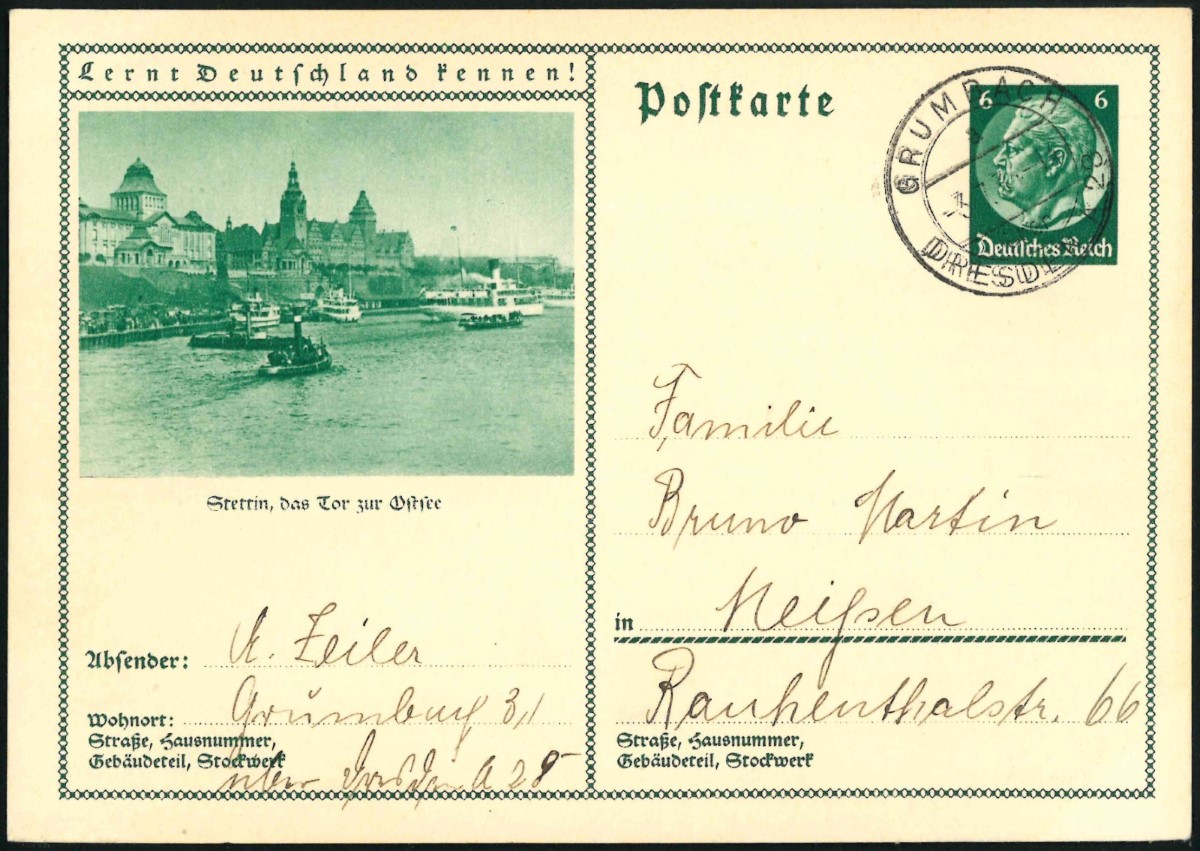 Lernt Deutschland kennen!
Stettin, das Tor zur Ostsee
Absender: A. Zeiler
Wohnort: Grumbach 31
Straße, Hausnummer,
Gebäudeteil, Stockwerk
über Dresden A 28
Postkarte
6 6
Deutsches Reich
GRUMBACH
DRESDEN
28
Familie
Bruno Martin
in Meißen
Rauhenthalstr. 66
Straße, Hausnummer,
Gebäudeteil, Stockwerk